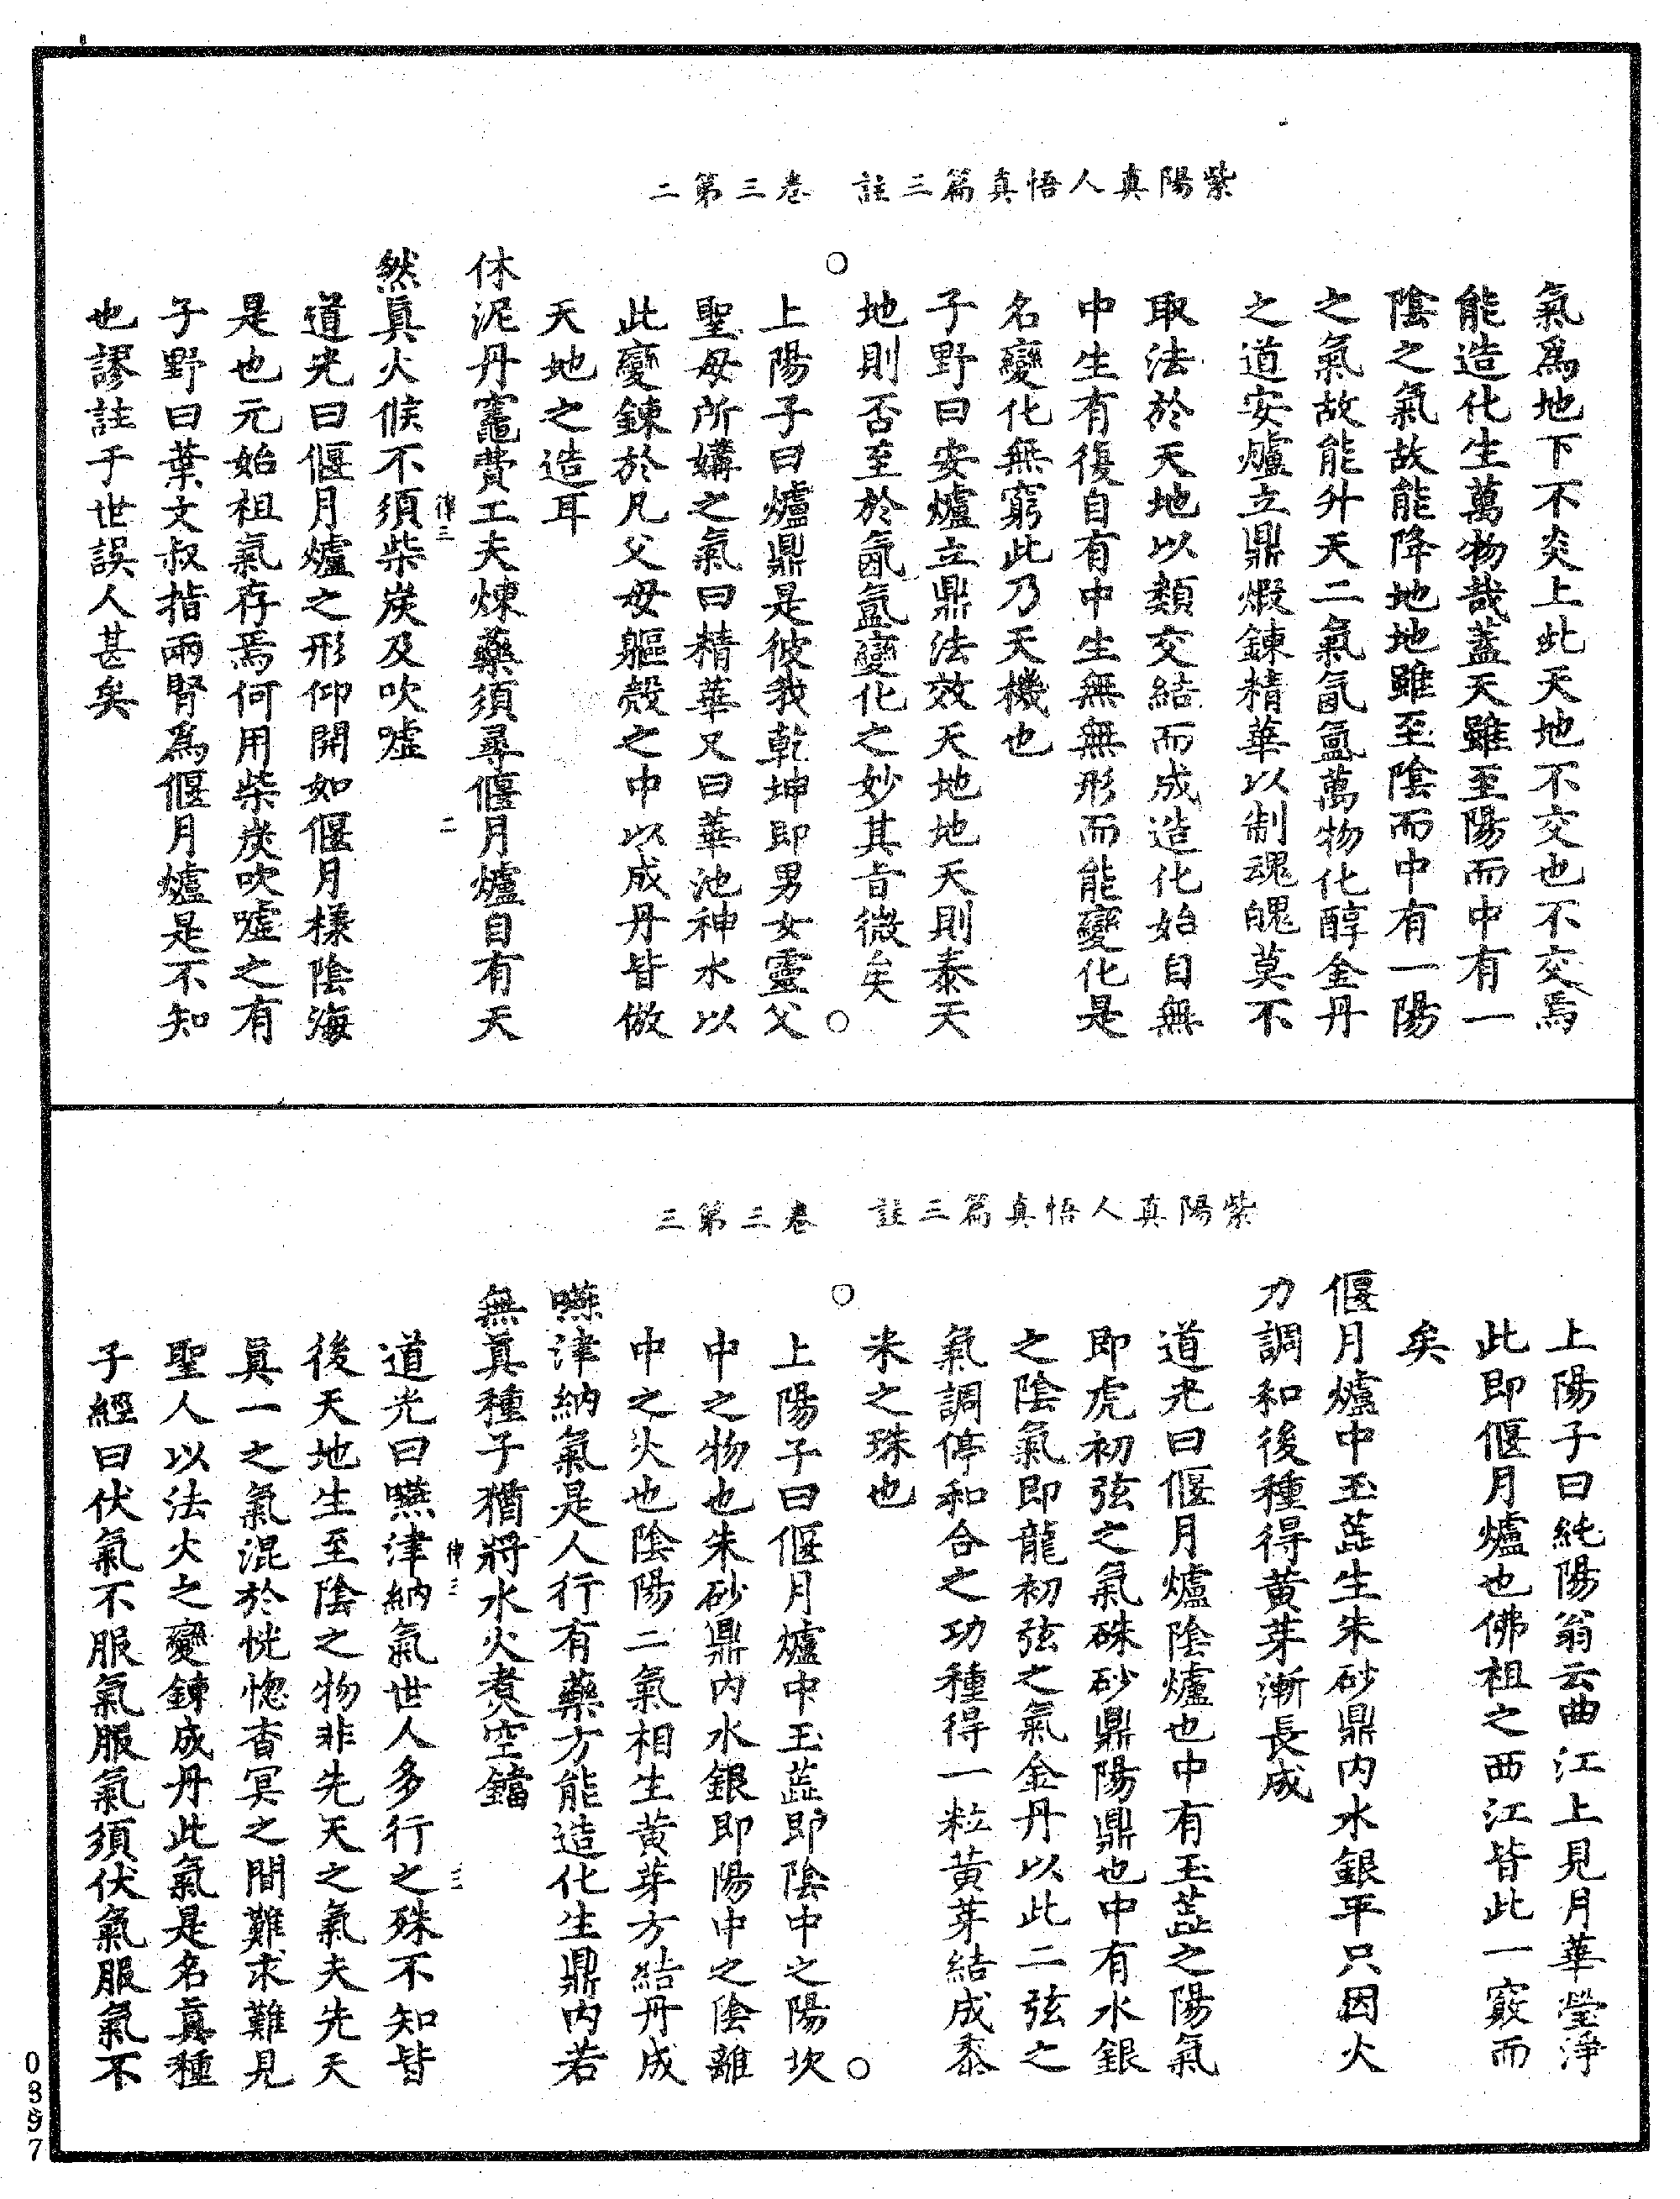 紫陽真人悟真篇三註　卷三第二
氣爲地下不炎上此天地不交也不交焉
能造化生萬物哉蓋天雖至陽而中有一
陰之氣故能降地地雖至陰而中有一陽
之氣故能升天二氣氤氳萬物化醇金丹
之道安爐立鼎煅鍊精華以制魂魄莫不
取法於天地以類交結而成造化始自無
中生有復自有中生無無形而能變化是
名變化無窮此乃天機也
子野曰安爐立鼎法效天地地天則泰天
地則否至於氤氳變化之妙其旨微矣
上陽子曰爐鼎是彼我乾坤即男女靈父
聖母所媾之氣曰精華又曰華池神水以
此變鍊於凡父母軀殼之中以成丹皆倣
天地之造耳
休泥丹竈費工夫煉藥須尋偃月爐自有天
律三　二
然眞火候不須柴炭及吹噓
道光曰偃月爐之形仰開如偃月樣陰海
是也元始祖氣存焉何用柴炭吹噓之有
子野曰葉文叔指兩腎爲偃月爐是不知
也謬註于世誤人甚矣
紫陽真人悟真篇三註　卷三第三
上陽子曰純陽翁云曲江上見月華瑩淨
此即偃月爐也佛祖之西江皆此一竅而
矣
偃月爐中玉蕋生朱砂鼎內水銀平只因火
力調和後種得黃芽漸長成
道光曰偃月爐陰爐也中有玉蕋之陽氣
即虎初弦之氣硃砂鼎陽鼎也中有水銀
之陰氣即龍初弦之氣金丹以此二弦之
氣調停和合之功種得一粒黃芽結成黍
米之珠也
上陽子曰偃月爐中玉蕋即陰中之陽坎
中之物也朱砂鼎內水銀即陽中之陰離
中之火也陰陽二氣相生黃芽方結丹成
嚥津納氣是人行有藥方能造化生鼎內若
無眞種子猶將水火煑空鐺
律三　三
道光曰嚥津納氣世人多行之殊不知皆
後天地生至陰之物非先天之氣夫先天
眞一之氣混於恍惚杳冥之間難求難見
聖人以法火之變鍊成丹此氣是名眞種
子經曰伏氣不服氣服氣須伏氣服氣不
0397